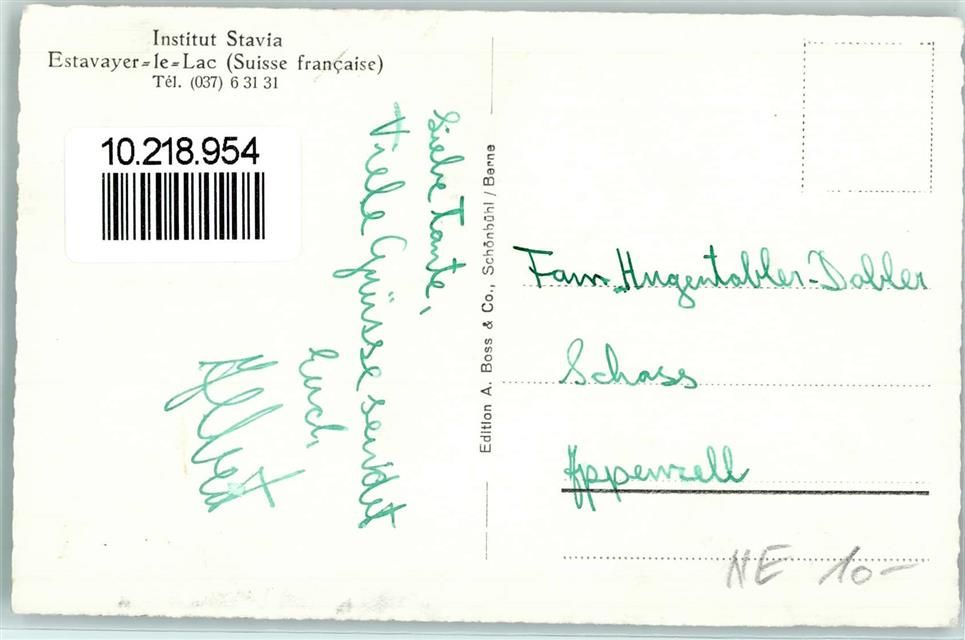 Institut Stavia
Estavayer=le=Lac (Suisse française)
Tél. (037) 6 31 31
10.218.954
Liebe Tante,
Viele Grüsse sendet
Euch
Albert
Edition A. Boss & Co., Schönbühl / Berne
Fam. Hugentobler-Dobler
Schoss
Appenzell
NE 10-